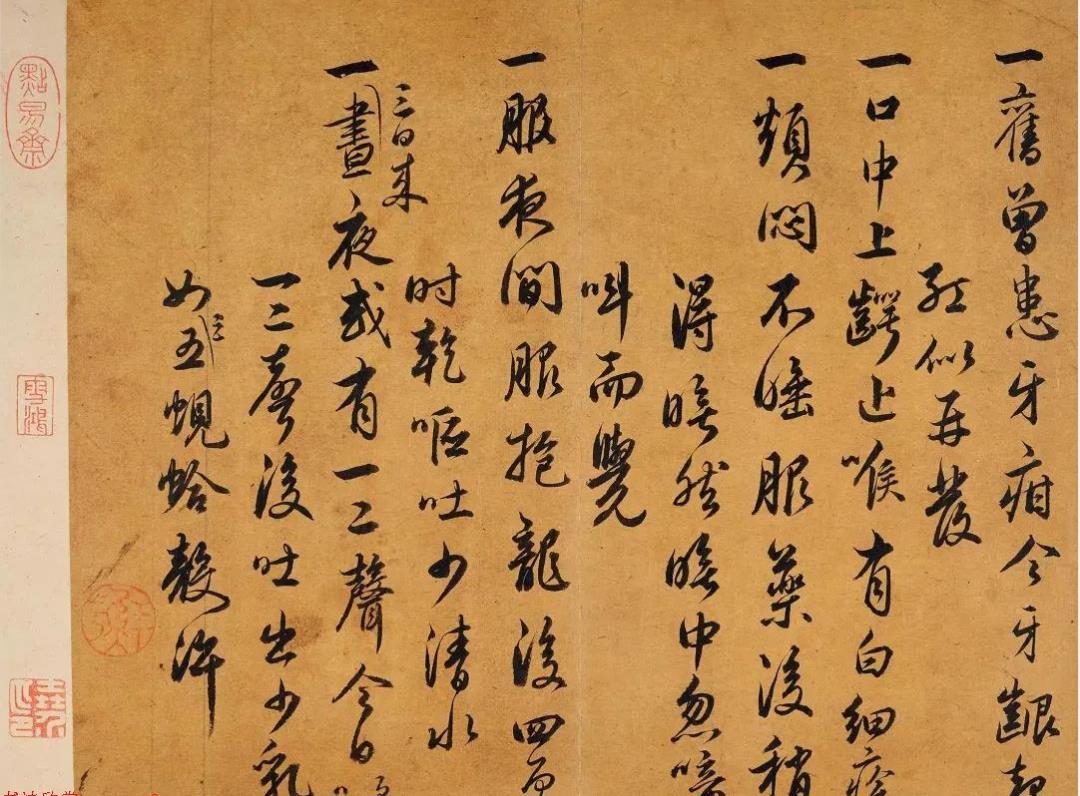 一舊曾患牙疳今牙齦
似再發
一口中上齶喉有白細瘡
一煩悶不睡服藥後稍
得睡然睡中忽
叫而覺
一服夜間服抱龍後四更
時乾嘔吐少清水
三日來
一晝夜或有一二聲今日
一二聲後吐出少乳
如三五蜆蛤殼許
雪鴻